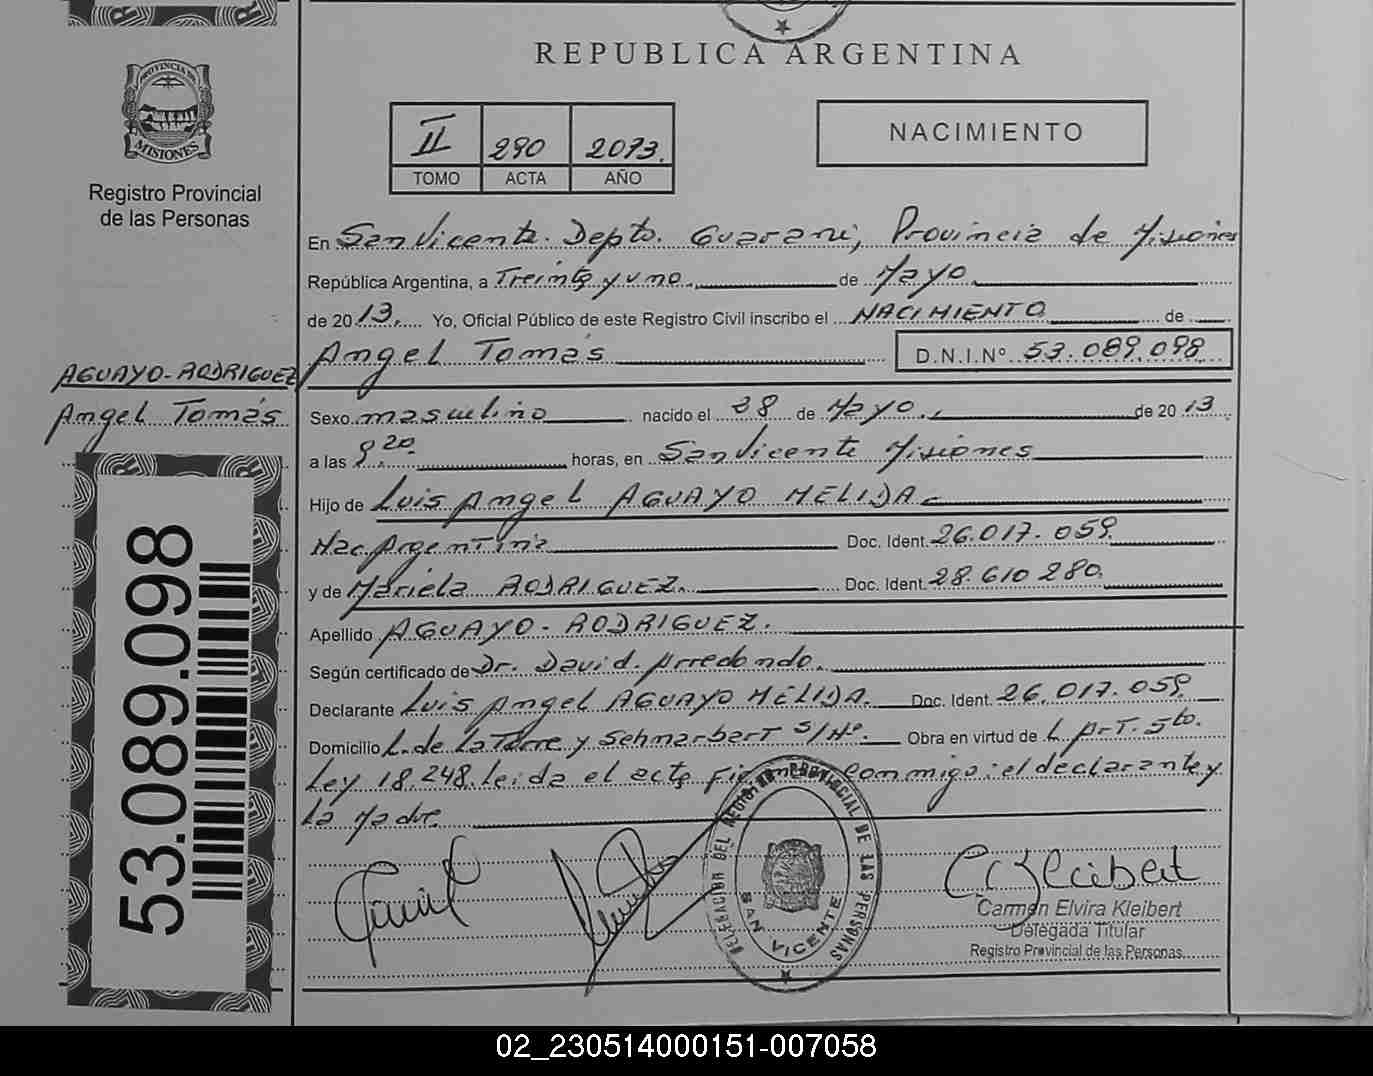 REPUBLICA ARGENTINA
PROVINCIA DE
MISIONES
Registro Provincial
de las Personas
II 290 2013.
TOMO ACTA AÑO
NACIMIENTO
En San Vicente. Depto. Guarani, Provincia de Misiones
República Argentina, a Treinta y uno. de Mayo
de 2013. Yo, Oficial Público de este Registro Civil inscribo el NACIMIENTO de
Angel Tomás D.N.I.Nº 53.089.098
AGUAYO-RODRIGUEZ
Angel Tomás
Sexo masculino nacido el 28 de Mayo. de 2013
a las 8 20. horas, en San Vicente Misiones
Hijo de Luis Angel AGUAYO MELIDA
Nac. Argentina Doc. Ident. 26.017.059.
y de Mariela RODRIGUEZ. Doc. Ident. 28.610 280.
Apellido AGUAYO-RODRIGUEZ.
Según certificado de Dr. David. Arredondo.
Declarante Luis Angel AGUAYO MELIDA. Doc. Ident. 26.017.059.
Domicilio L. de La Torre y S/Nº. Obra en virtud de L. Art. 5to.
Ley 18.248. leida el acta conmigo: el declarante y
La Madre.
53.089.098
DELEGACION DEL REGISTRO PROVINCIAL DE LAS PERSONAS
SAN VICENTE
Carmen Elvira Kleibert
Delegada Titular
Registro Provincial de las Personas
02_230514000151-007058